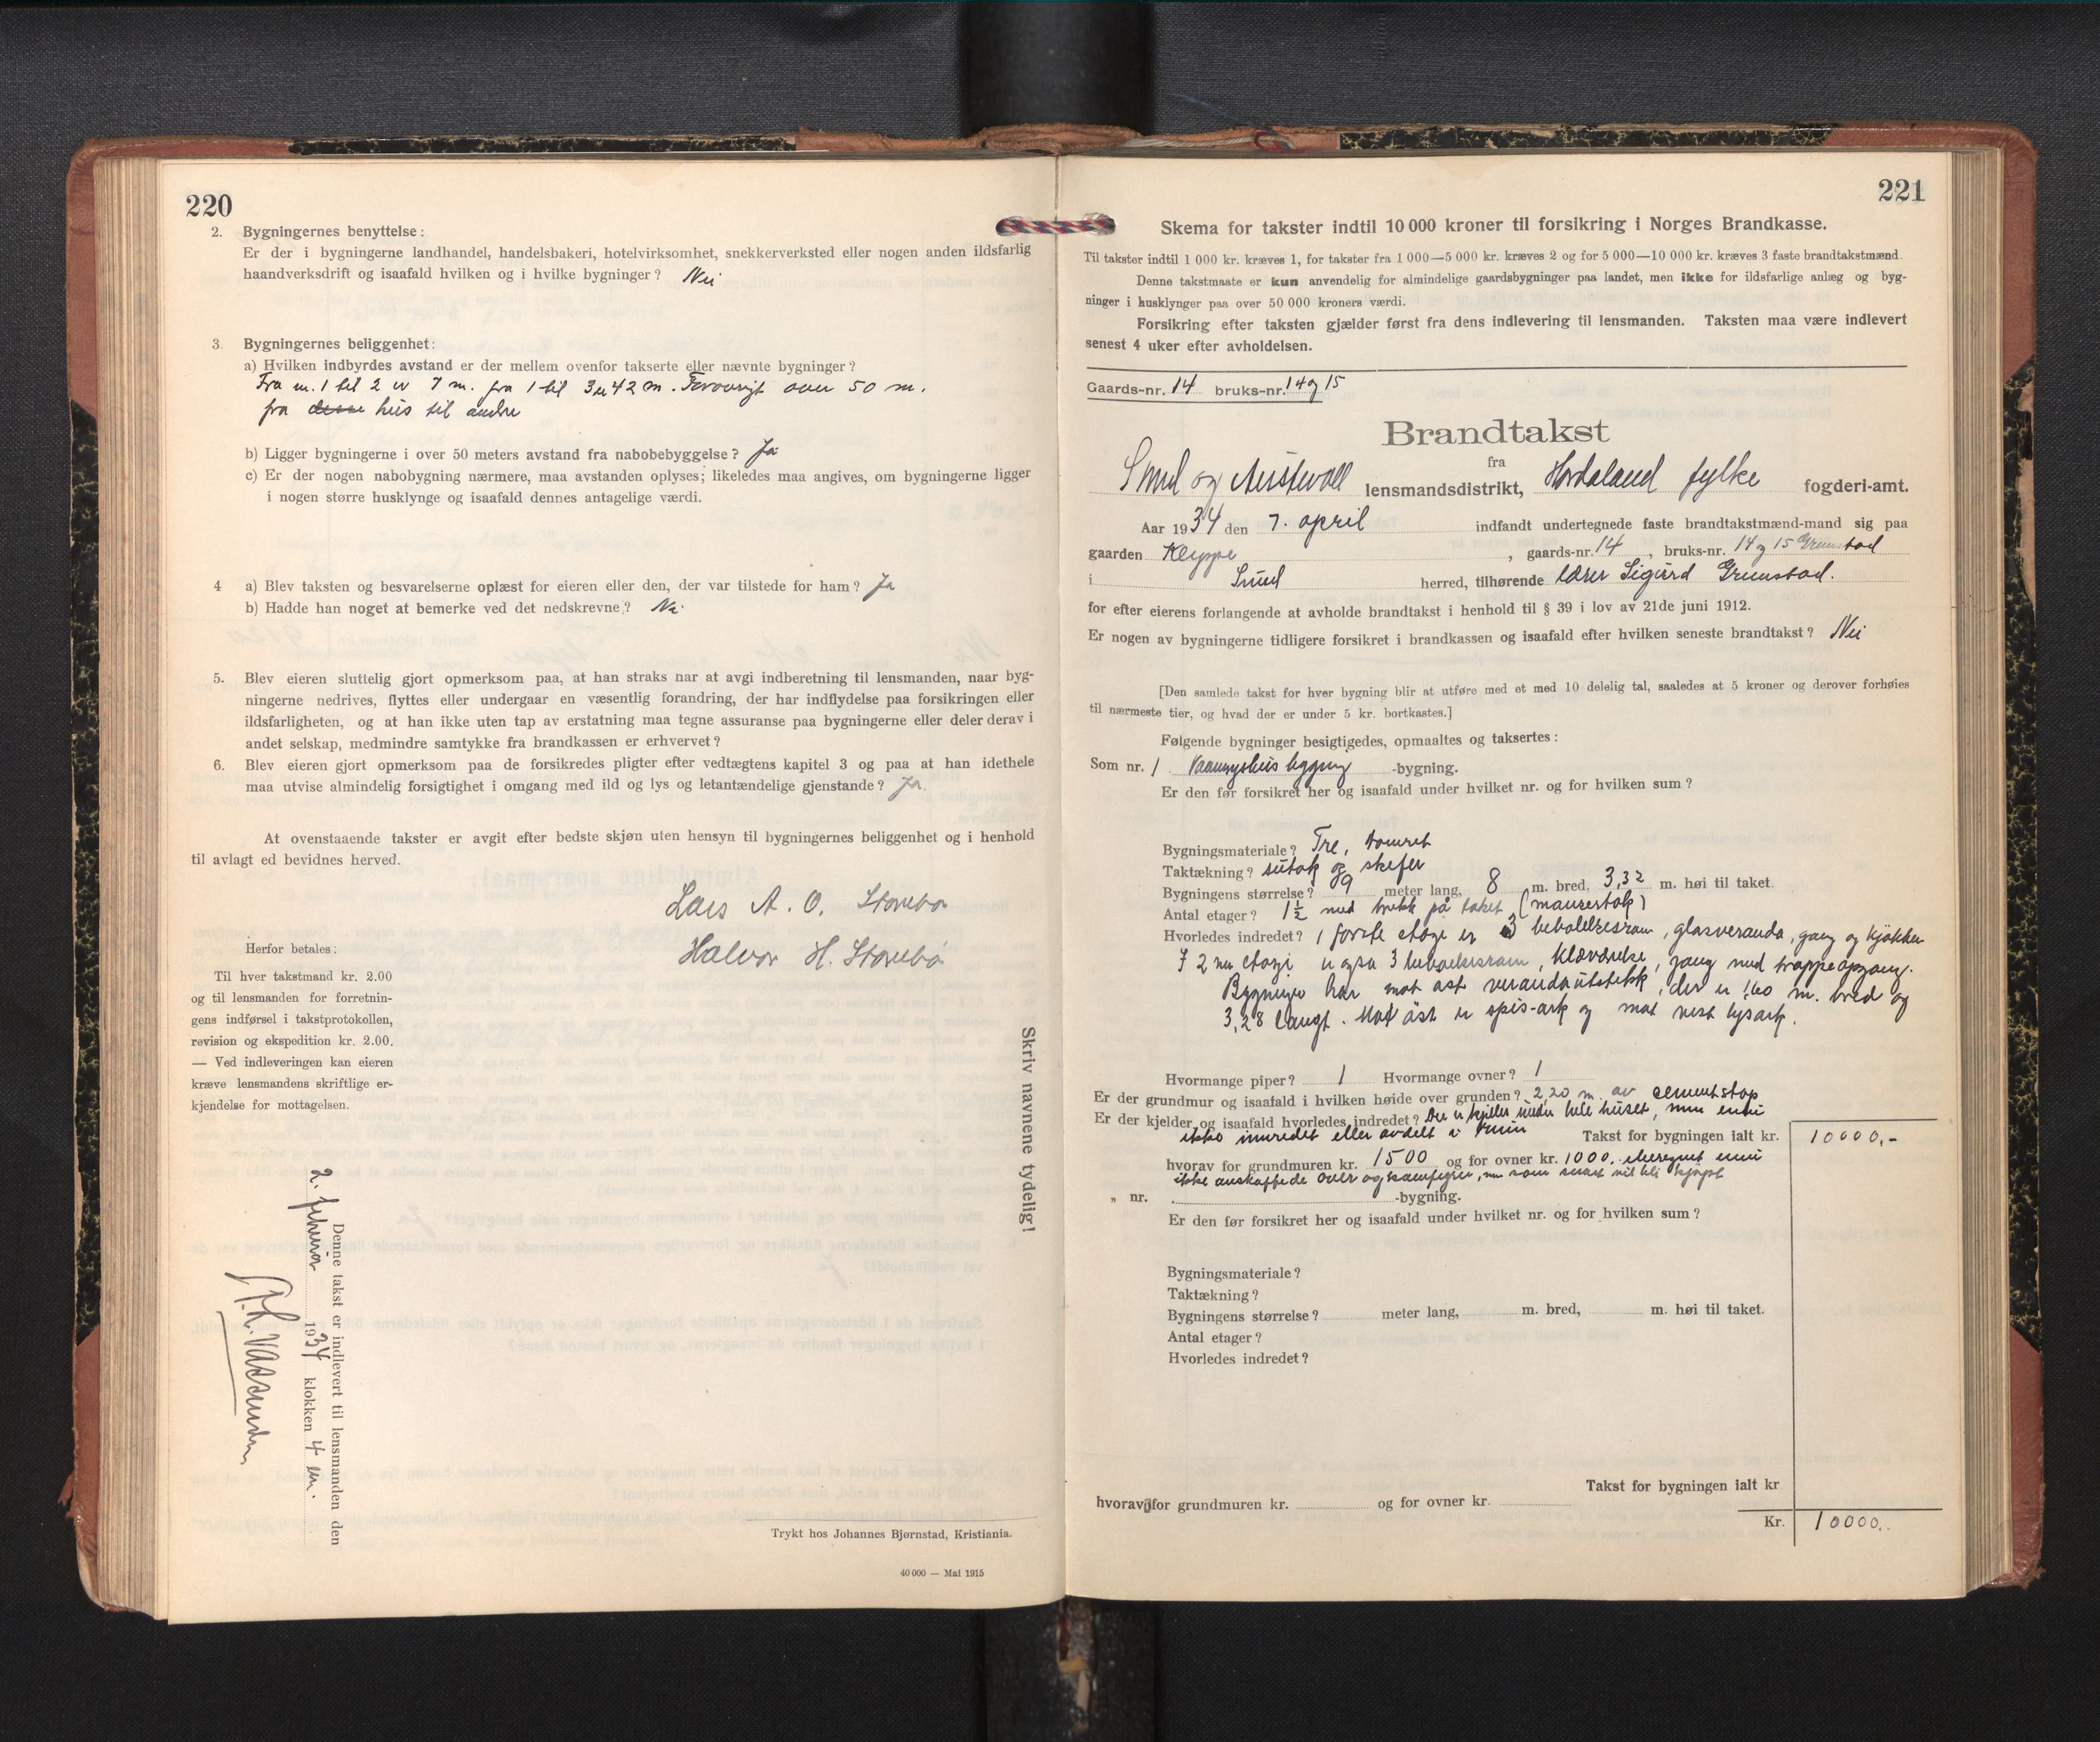 220
2. Bygningernes benyttelse:
Er der i bygningerne landhandel, handelsbakeri, hotelvirksomhet, snekkerverksted eller nogen anden ildsfarlig
haandverksdrift og isaafald hvilken og i hvilke bygninger? Nei
3. Bygningernes beliggenhet:
a) Hvilken indbyrdes avstand er der mellem ovenfor takserte eller nævnte bygninger?
Fra nr. 1 til 2 er 7 m. fra 1 til 3 er 42 m. Forövrigt over 50 m.
fra desse hus til andre
b) Ligger bygningerne i over 50 meters avstand fra nabobebyggelse? Ja
c) Er der nogen nabobygning nærmere, maa avstanden oplyses; likeledes maa angives, om bygningerne ligger
i nogen større husklynge og isaafald dennes antagelige værdi.
4 a) Blev taksten og besvarelserne oplæst for eieren eller den, der var tilstede for ham? Ja
b) Hadde han noget at bemerke ved det nedskrevne? Nei
5. Blev eieren sluttelig gjort opmerksom paa, at han straks nar at avgi indberetning til lensmanden, naar byg-
ningerne nedrives, flyttes eller undergaar en væsentlig forandring, der har indflydelse paa forsikringen eller
ildsfarligheten, og at han ikke uten tap av erstatning maa tegne assuranse paa bygningerne eller deler derav i
andet selskap, medmindre samtykke fra brandkassen er erhvervet?
6. Blev eieren gjort opmerksom paa de forsikredes pligter efter vedtægtens kapitel 3 og paa at han idethele
maa utvise almindelig forsigtighet i omgang med ild og lys og letantændelige gjenstande? Ja.
At ovenstaaende takster er avgit efter bedste skjøn uten hensyn til bygningernes beliggenhet og i henhold
til avlagt ed bevidnes herved.
Lars A. O. Storebø
Halvor H. Storebø
Herfor betales:
Til hver takstmand kr. 2.00
og til lensmanden for forretnin-
gens indførsel i takstprotokollen,
revision og ekspedition kr. 2.00.
— Ved indleveringen kan eieren
kræve lensmandens skriftlige er-
kjendelse for mottagelsen.
Skriv navnene tydelig!
Denne takst er indlevert til lensmanden den
2. februar 1934 klokken 4 em.
Trykt hos Johannes Bjørnstad, Kristiania.
40 000 — Mai 1915
221
Skema for takster indtil 10 000 kroner til forsikring i Norges Brandkasse.
Til takster indtil 1 000 kr. kræves 1, for takster fra 1 000—5 000 kr. kræves 2 og for 5 000—10 000 kr. kræves 3 faste brandtakstmænd.
Denne takstmaate er kun anvendelig for almindelige gaardsbygninger paa landet, men ikke for ildsfarlige anlæg og byg-
ninger i husklynger paa over 50 000 kroners værdi.
Forsikring efter taksten gjælder først fra dens indlevering til lensmanden. Taksten maa være indlevert
senest 4 uker efter avholdelsen.
Gaards-nr. 14 bruks-nr. 14 og 15
Brandtakst
fra
Sund og Austevoll lensmandsdistrikt, Hordaland fylke fogderi-amt.
Aar 1934 den 7. april indfandt undertegnede faste brandtakstmænd-mand sig paa
gaarden Kleppe, gaards-nr. 14, bruks-nr. 14 og 15 Grunstad
i Sund herred, tilhørende lærer Sigurd Grunstad.
for efter eierens forlangende at avholde brandtakst i henhold til § 39 i lov av 21de juni 1912.
Er nogen av bygningerne tidligere forsikret i brandkassen og isaafald efter hvilken seneste brandtakst? Nei
[Den samlede takst for hver bygning blir at utføre med et med 10 delelig tal, saaledes at 5 kroner og derover forhøies
til nærmeste tier, og hvad der er under 5 kr. bortkastes.]
Følgende bygninger besigtigedes, opmaaltes og taksertes:
Som nr. 1 Vaaningshus bygning -bygning.
Er den før forsikret her og isaafald under hvilket nr. og for hvilken sum?
Bygningsmateriale? Tre, tømret
Taktækning? sutak og skifer
Bygningens størrelse? 9 meter lang, 8 m. bred, 3,32 m. høi til taket.
Antal etager? 1½ med brekk på taket (mansertak)
Hvorledes indredet? I förste etage er 3 beboelsesrum, glasveranda, gang og kjökken
I 2nn etage er også 3 beboelsesrum, klæværelse, gang med trappeopgang.
Bygningen har mot öst verandautstikk, der er 1,60 m. bred og
3,28 langt. Mot öst er spis-ark og mot vest lysark.
Hvormange piper? 1 Hvormange ovner? 1
Er der grundmur og isaafald i hvilken høide over grunden? 2,20 m. av cementstøp
Er der kjelder og isaafald hvorledes indredet? Der er kjeller under hele huset, men ennu
ikke innredet eller avdelt i rum Takst for bygningen ialt kr. 10000,-
hvorav for grundmuren kr. 1500 og for ovner kr. 1000. iberegnet ennu
ikke anskaffede ovner og kamfyrer, som snart vil bli kjöpt
„ nr. -bygning.
Er den før forsikret her og isaafald under hvilket nr. og for hvilken sum?
Bygningsmateriale?
Taktækning?
Bygningens størrelse? meter lang, m. bred, m. høi til taket.
Antal etager?
Hvorledes indredet?
Takst for bygningen ialt kr
hvorav for grundmuren kr. og for ovner kr.
Kr. 10000.